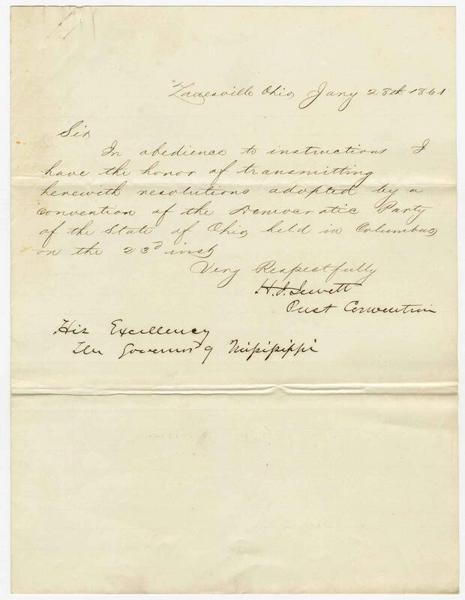 Zanesville Ohio Jany 28th 1861
Sir
In obedience to instructions I
have the honor of transmitting
herewith resolutions adopted by a
convention of the Democratic Party
of the State of Ohio held in Columbus
on the 23d inst
Very Respectfully
H.J. Jewett
Prest Convention
His Excellency
The Governor of Mississippi